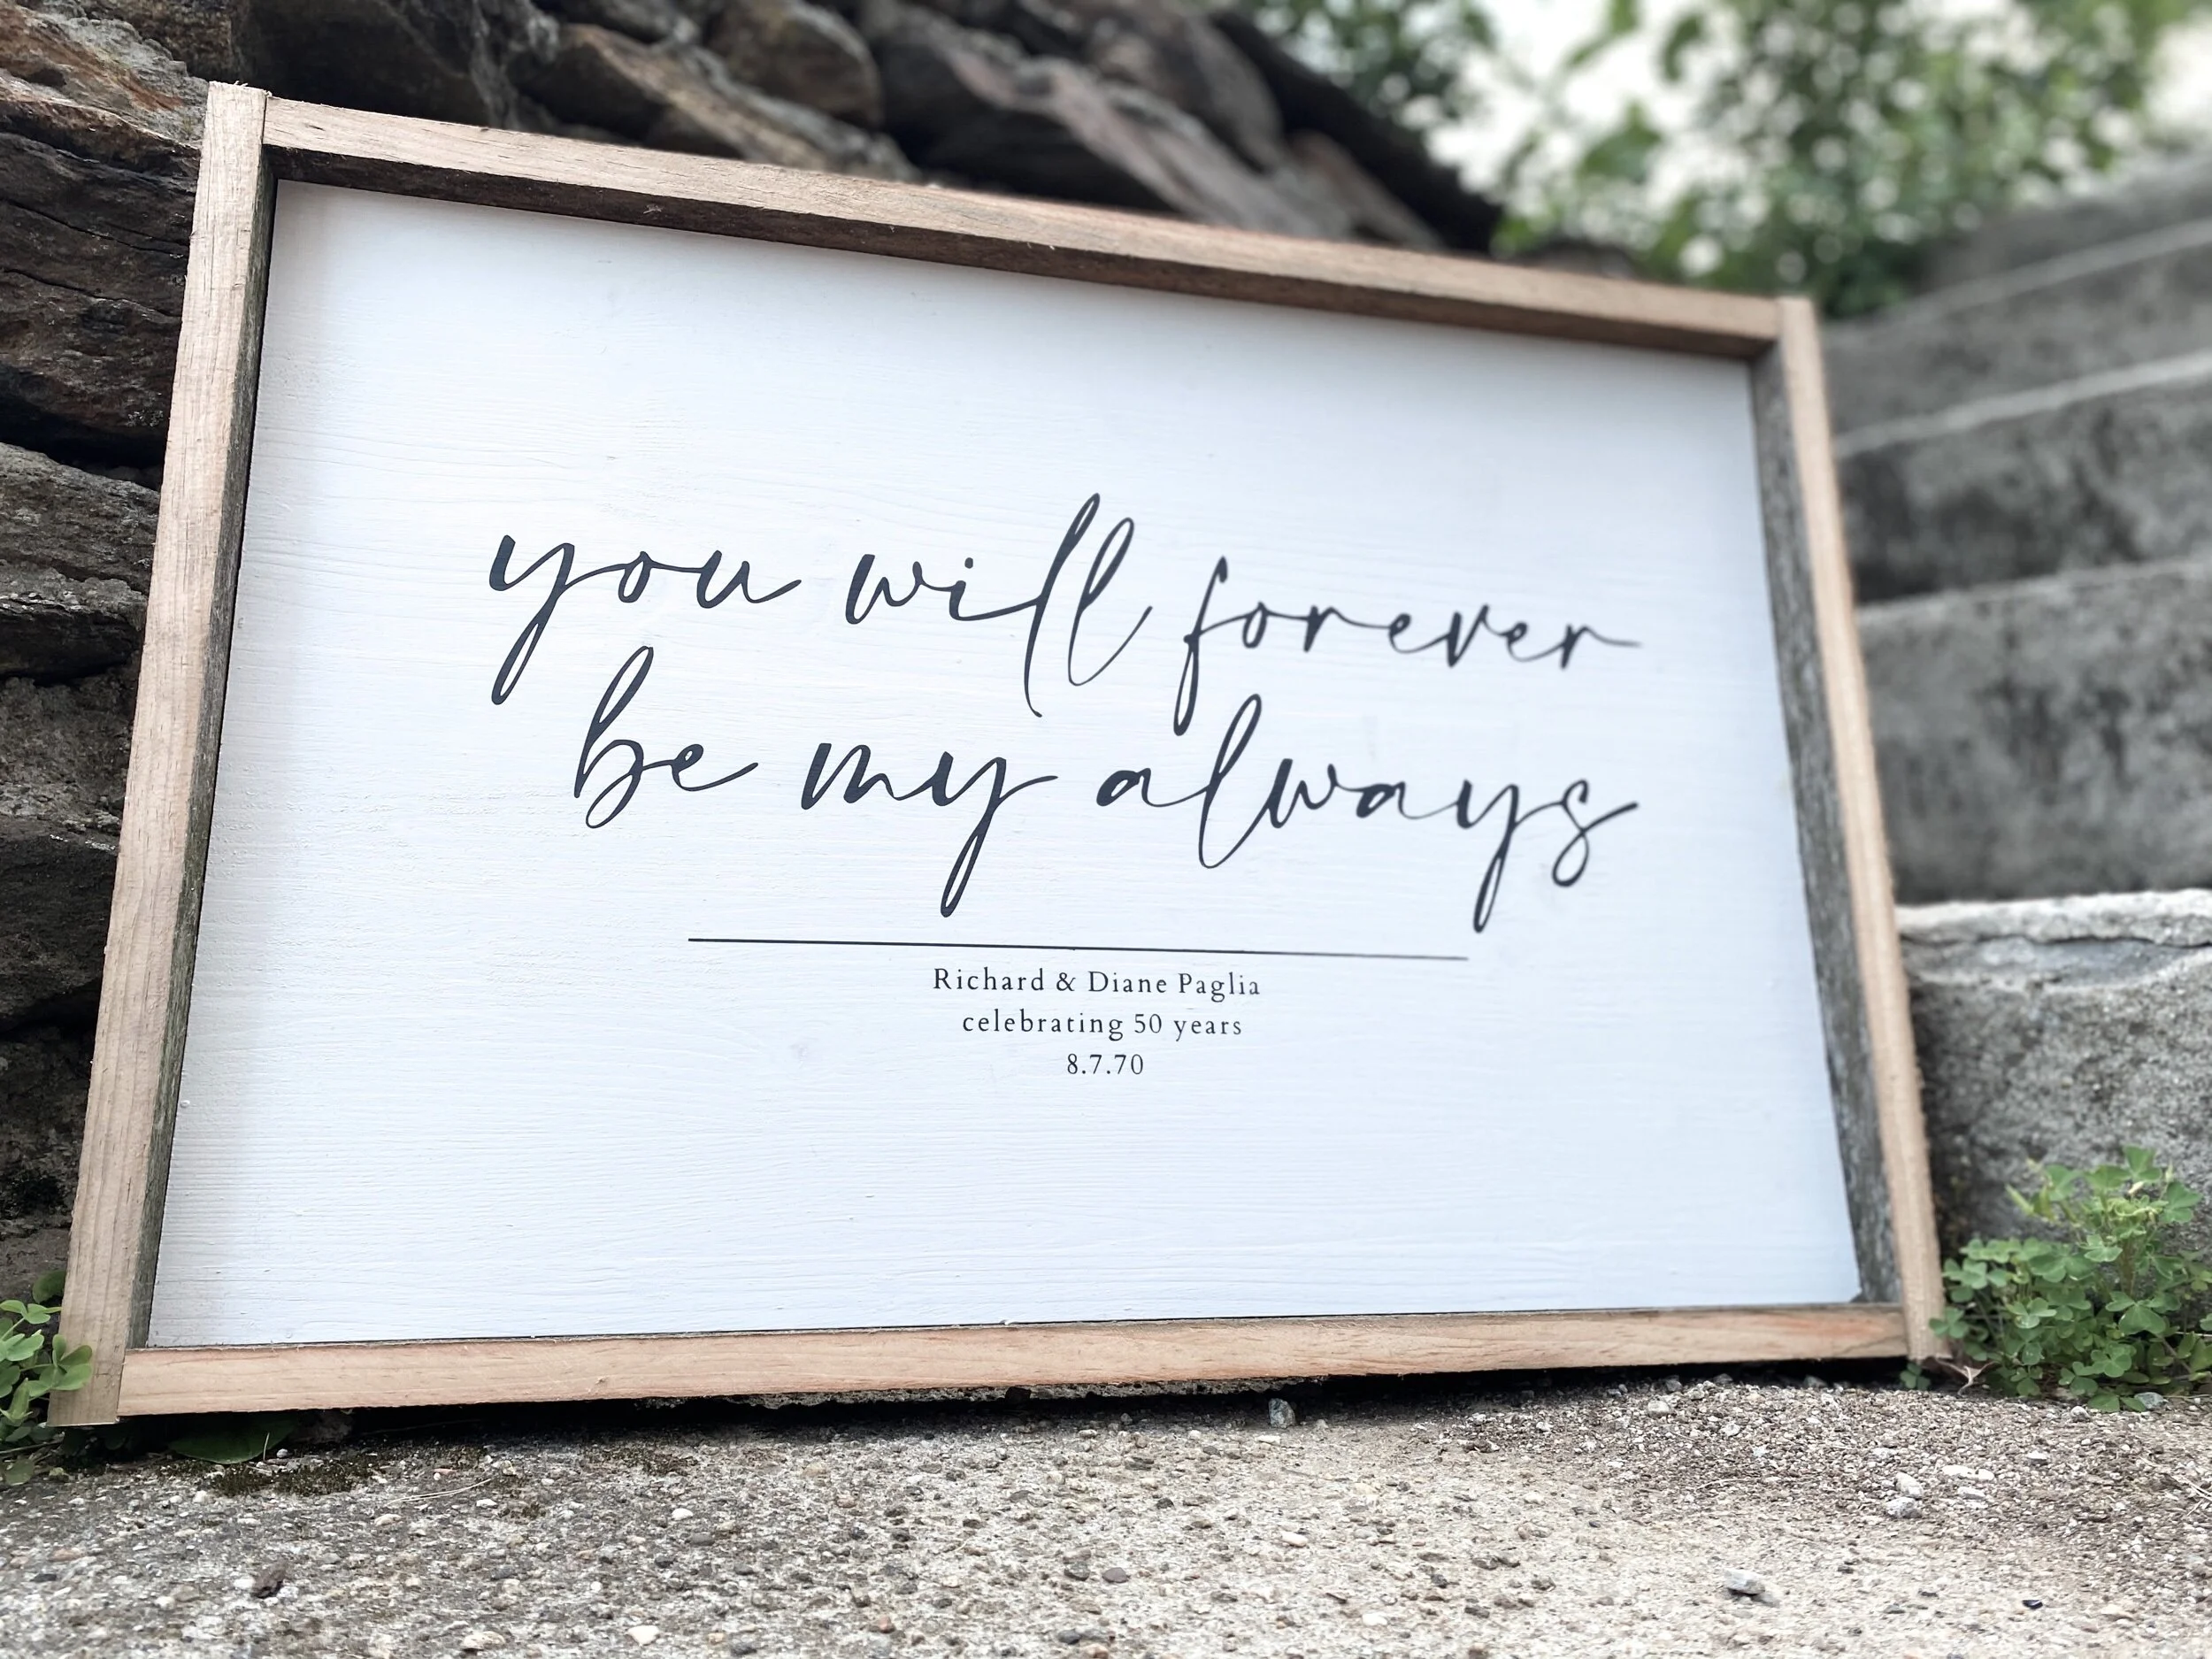 you will forever
be my always
Richard & Diane Paglia
celebrating 50 years
8.7.70